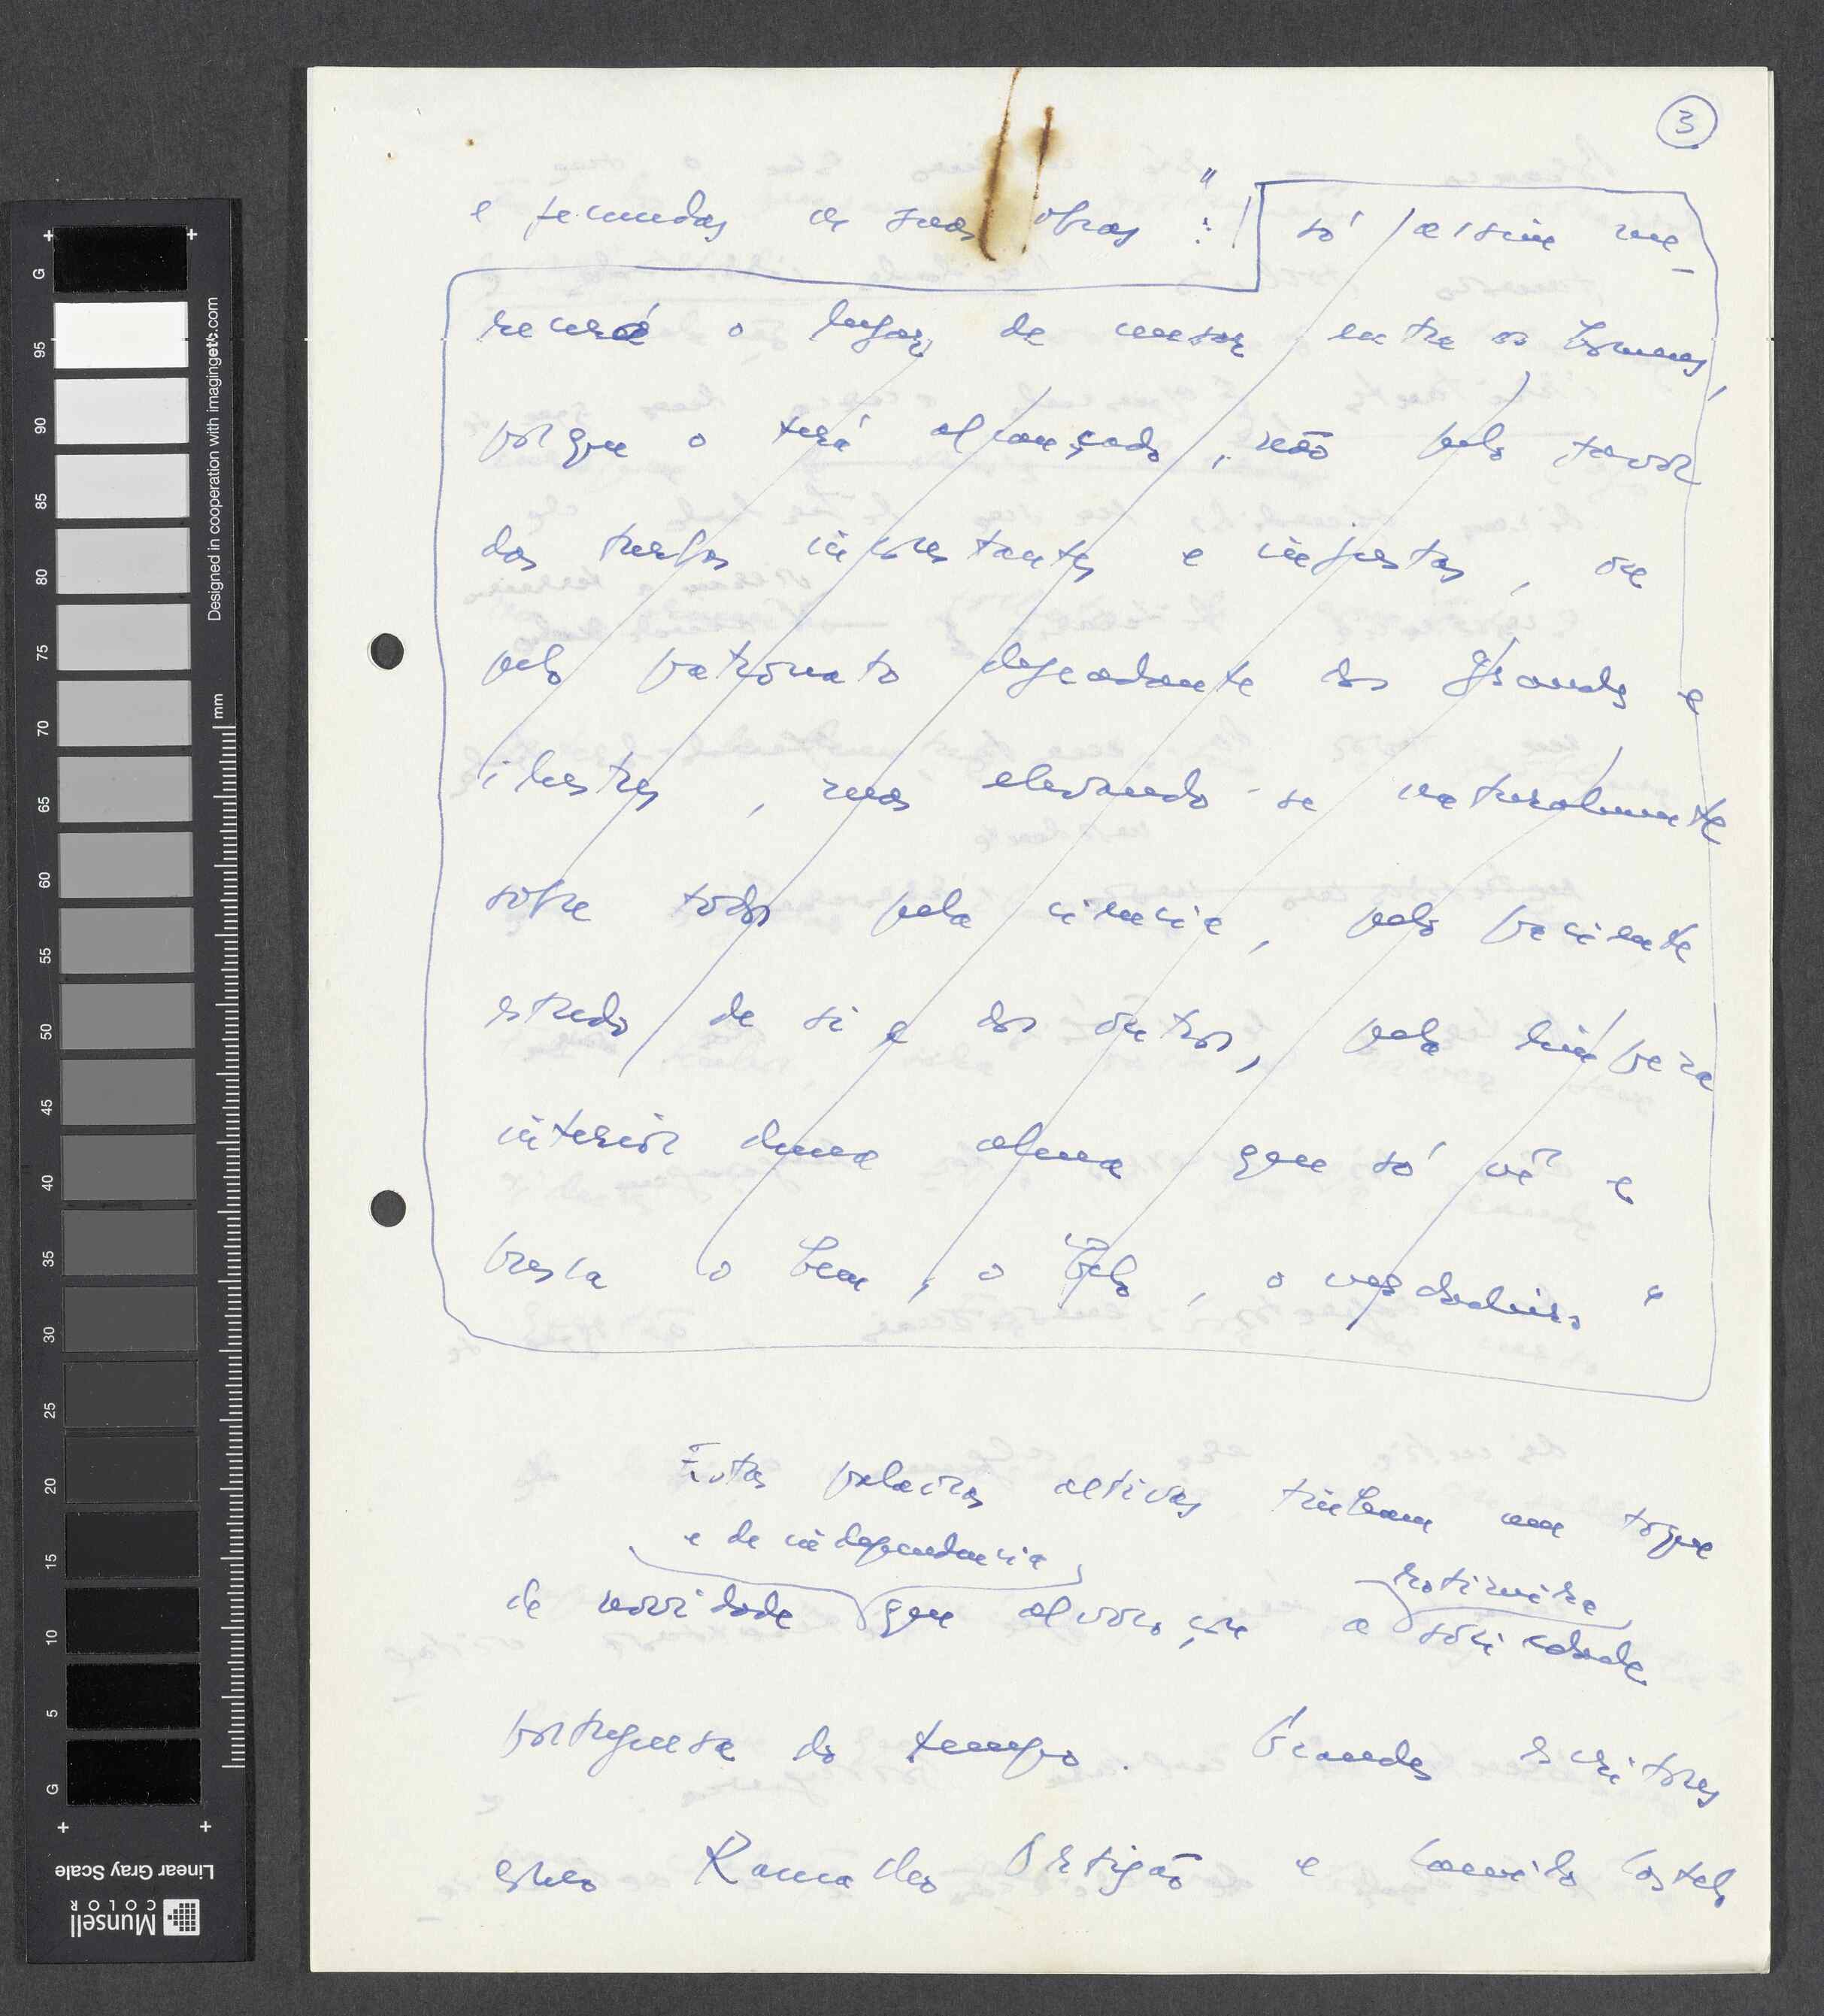 3
e fecundas as suas obras": só assim me-
recerá o lugar de censor entre os homens,
porque o terá alcançado, não pelo favor
das turbas inconstantes e injustas, ou
pelo patronato degradante dos grandes e
ilustres, mas elevando-se naturalmente
sobre todos pela ciência, pelo paciente
estudo de si e dos outros, pela limpeza
interior duma alma que só vê e
busca o bem, o belo, o verdadeiro"
Estas palavras altivas tinham um toque
e de independência
rotineira
de novidade que alvoroçou a sociedade
portuguesa do tempo. Grandes escritores
como Ramalho Ortigão e Camilo Castelo
Designed in cooperation with imagingetc.com
mm
G
95
90
85
80
75
70
65
60
55
50
45
40
35
30
25
20
15
10
5
G
Linear Gray Scale
Munsell
COLOR